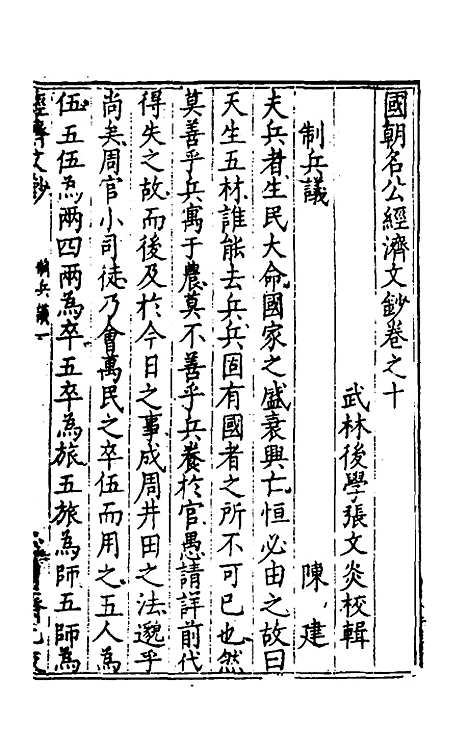 國朝名公經濟文鈔卷之十
武林後學張文炎校輯
制兵議
陳建
夫兵者生民大命國家之盛衰興亡恒必由之故曰
天生五材誰能去兵兵固有國者之所不可已也然
莫善乎兵寓于農莫不善乎兵養於官愚請詳前代
得失之故而後及於今日之事成周井田之法邈乎
尚矣周官小司徒乃會萬民之卒伍而用之五人為
伍五伍為兩四兩為卒五卒為旅五旅為師五師為
經濟文鈔
制兵議一